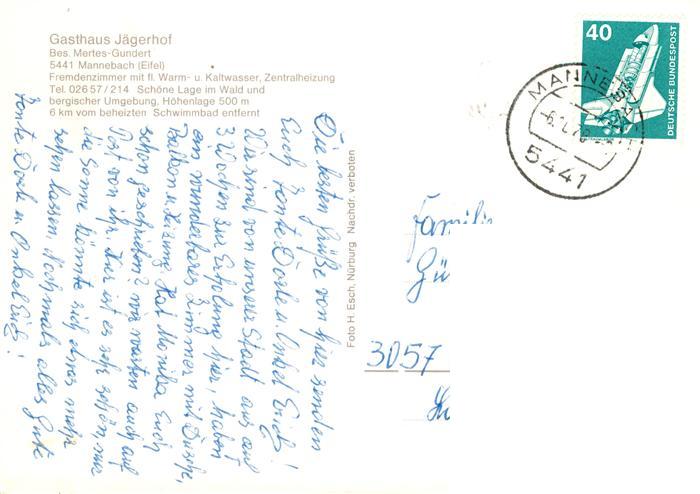 Gasthaus Jägerhof
Bes. Mertes-Gundert
5441 Mannebach (Eifel)
Fremdenzimmer mit fl. Warm- u. Kaltwasser, Zentralheizung
Tel. 02657/214 Schöne Lage im Wald und
bergischer Umgebung, Höhenlage 500 m
6 km vom beheizten Schwimmbad entfernt
Die besten Grüße von hier senden
Euch Tante Dorle u. Onkel Erich!
Wir sind von unserer Stadt aus auf
3 Wochen zur Erholung hier, haben
ein wunderbares Zimmer mit Dusche,
Balkon u. Heizung. Hat Monika Euch
schon geschrieben? wir warten auch auf
Post von ihr. Hier ist es sehr schön, nur
die Sonne könnte sich etwas mehr
sehen lassen. Nochmals alles Gute
Tante Dorle u. Onkel Erich!
Foto H. Esch, Nürburg Nachdr. verboten
40
DEUTSCHE BUNDESPOST
5441
Famili
Gü
3057